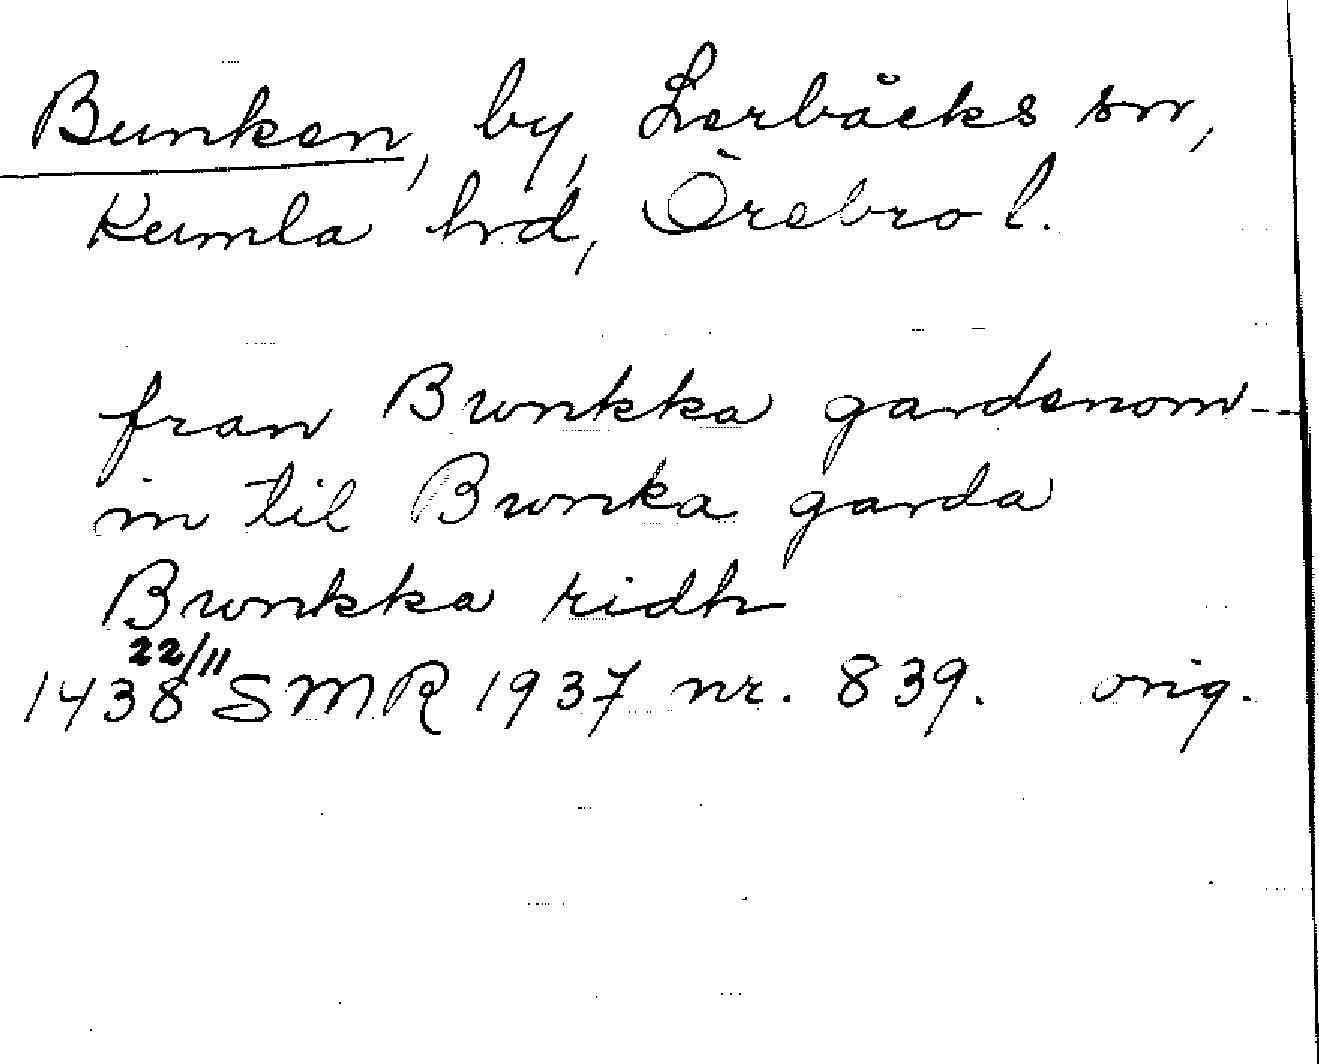 Bunken, by, Lerbäcks sn,
Kumla hd, Örebro l.
fran Bwnkka gardenom--
in til Bwnka garda
Bwnkka ridh
22/11
1438 SMR 1937 nr. 839. orig.